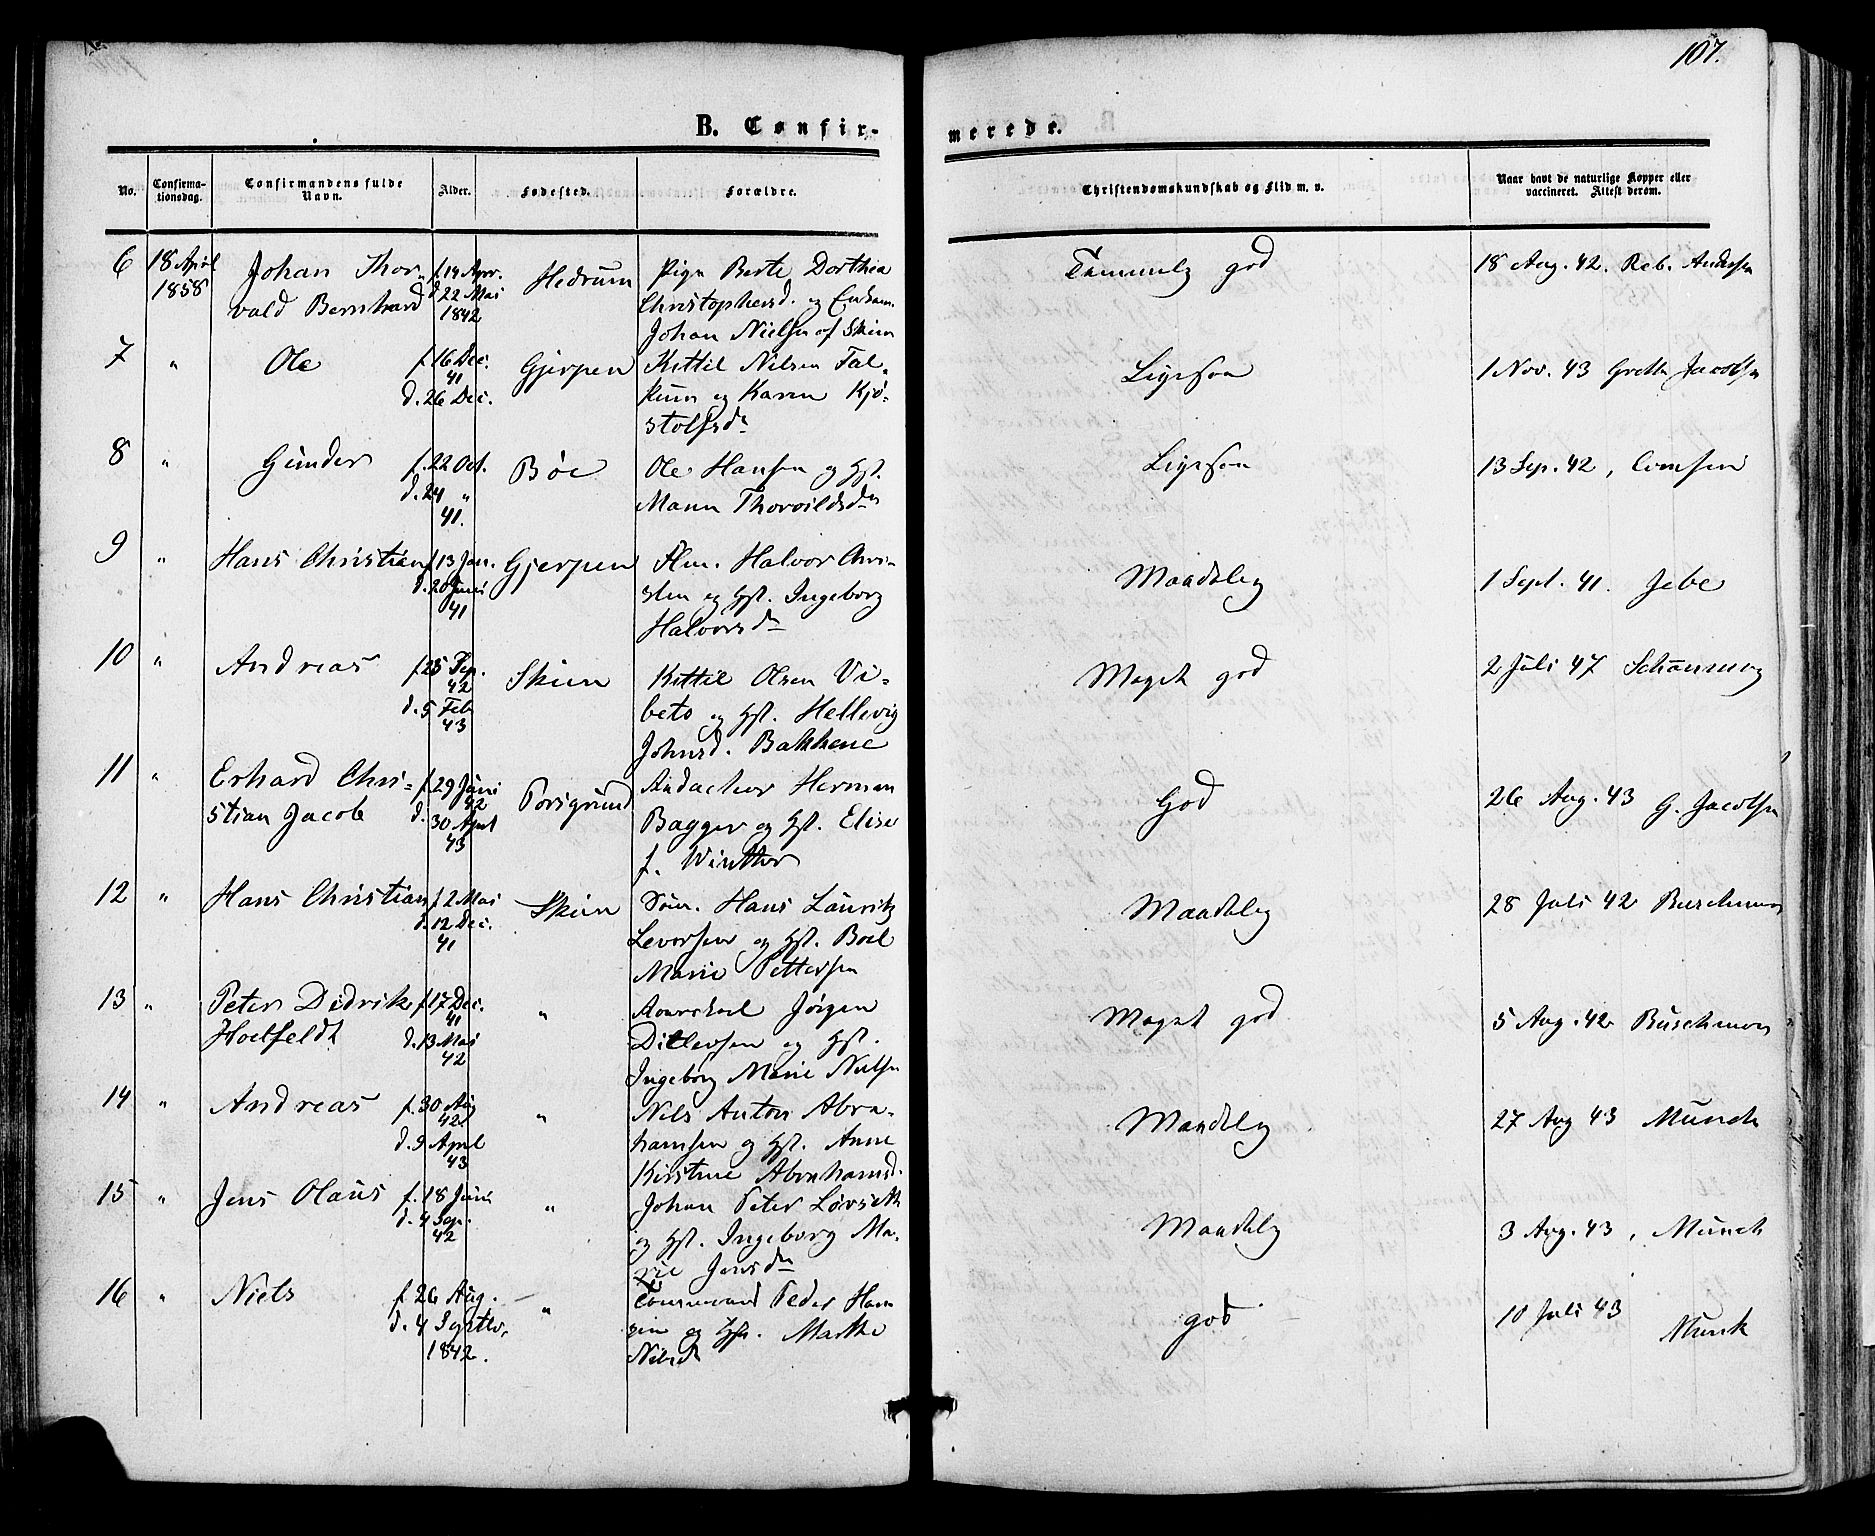 107.
B. Confir-
merede.
No.
Confirma-
tionsdag.
Confirmandens fulde
Navn.
Alder.
Fødested.
Forældre.
Christendomskundskab og Flid m. v.
Naar havt de naturlige Kopper eller
vaccineret. Attest derom.
6 18 April Johan Thor- f. 14 Apr. Hedrum Pige Berte Dorthea Temmelig god 18 Aug. 42. Reb. Andersen
1858 vald Bernhard d. 22 Mai Christophersd. og
1842 Johan Nielsen af Skien
7 " Ole f. 16 Dec. Gjerpen Kittil Nilsen Fal- Ligesaa 1 Nov. 43 Grethe Jacobsen
41
d. 26 Dec. kum og Karen Kjø-
stolfsdr
8 " Gunder f. 22 Oct. Bøe Ole Hansen og Hst. Ligesaa 13 Sep. 42,
d. 24 " Maren Thorvildsdr
41.
9 " Hans Christian f. 13 Jan. Gjerpen Halvor Chri- Maadelig 1 Sept. 41. Jebe
d. 20 Juni sten og Hst. Ingeborg
41 Halvorsdr
10 " Andreas f. 25 Sep. Skien Kittil Olsen Vi- Meget god 2 Juli 47 Schanning
42
d. 5 Feb beto og Hst. Hellevig
43 Johnsd. Bakkene
11 " Erhard Chri- f. 29 Juni Porsgrund Herman God 26 Aug. 43 G. Jacobsen
42
stian Jacob d. 30 April Bagger og Hst. Elise
43 f. Winther
12 " Hans Christian f. 2 Mai Skien Hans Lauritz Maadelig 28 Juli 42 Buschman
d. 12 Dec. Levorsen og Hst. Boel
41 Marie Pettersen
13 " Peter Didrik f. 17 Dec. " Jørgen Meget god 5 Aug. 42 Buschman
41
Hoelfeldt d. 13 Mai Ditlevsen og Hst.
42 Ingeborg Marie Nielsen
14 " Andreas f. 30 Aug " Nils Anton Abra- Maadelig 27 Aug 43 Munch
42
d. 9 April hamsen og Hst. Anne
43 Kirstine Abrahamsd.
15 " Jens Olaus f. 18 Juni " Johan Peter Løvseth Maadelig 3 Aug. 43, Munch
d. 4 Sep. og Hst. Ingeborg Ma-
42 rie Jensdr
16 " Niels f. 26 Aug. " Tømmermand Peder Han god 10 Juli 43 Munk
d. 4 Septbr. sen og Hst. Marthe
1842. Nilsd